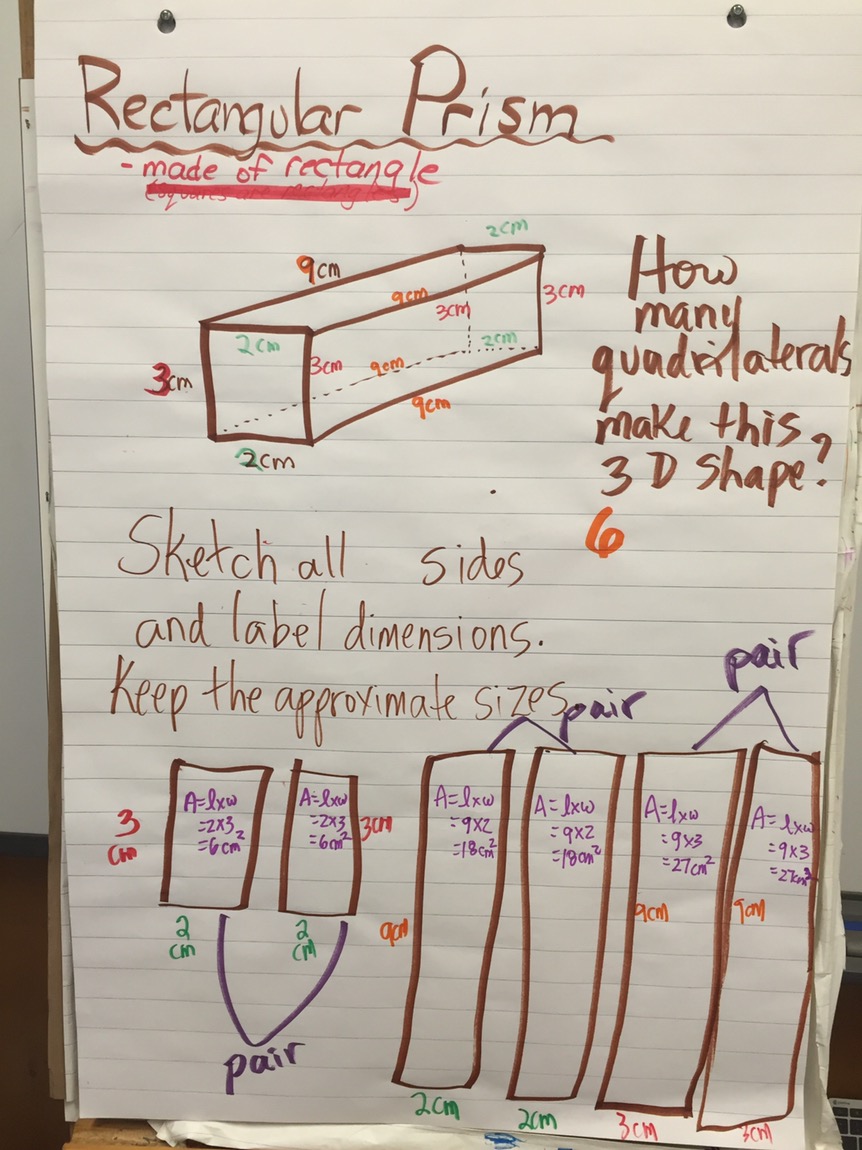 Rectangular Prism
- made of rectangle
(squares are rectangles)
2cm
9cm
9cm
3cm
3cm
2cm
3cm
9cm
2cm
3cm
9cm
2cm
How
many
quadrilaterals
make this
3D shape?
6
Sketch all sides
and label dimensions.
Keep the approximate sizes
pair
pair
3
cm
A=lxw
=2x3
=6cm²
2
cm
A=lxw
=2x3
=6cm²
3cm
2
cm
pair
A=lxw
=9x2
=18cm²
9cm
2cm
A=lxw
=9x2
=18cm²
2cm
A=lxw
=9x3
=27cm²
9cm
3cm
A=lxw
=9x3
=27cm²
9cm
3cm